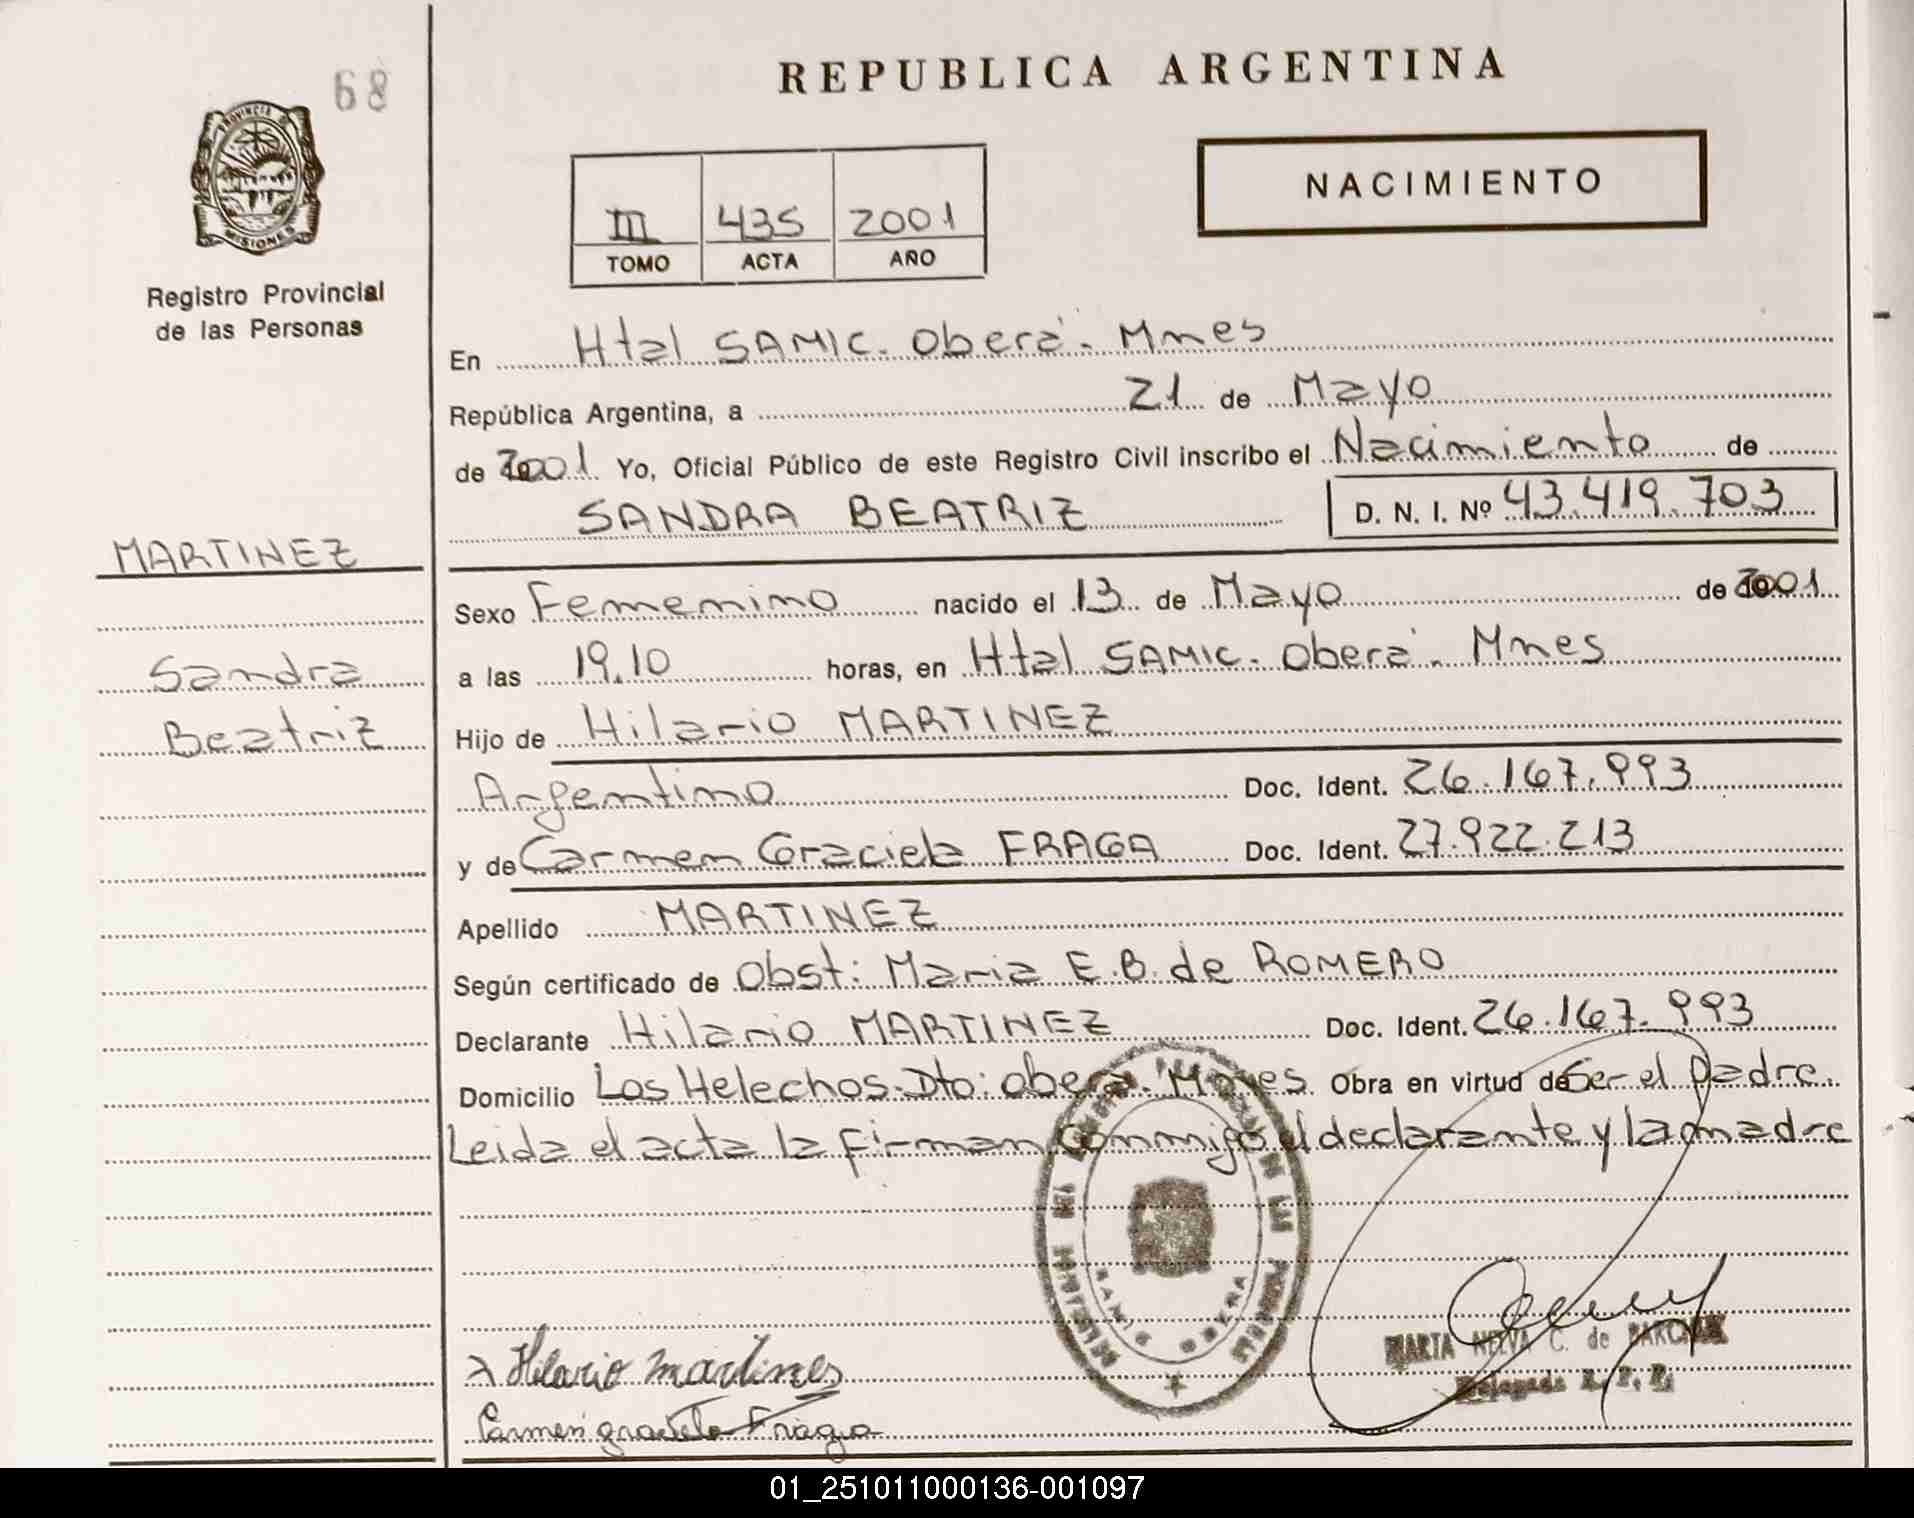 68
PROVINCIA DE
MISIONES
Registro Provincial
de las Personas
MARTINEZ
Sandra
Beatriz
REPUBLICA ARGENTINA
III 435 2001
TOMO ACTA AÑO
NACIMIENTO
En Htal SAMIC. Oberá. Mnes
República Argentina, a 21 de Mayo
de 2001 Yo, Oficial Público de este Registro Civil inscribo el Nacimiento de
SANDRA BEATRIZ D. N. I. Nº 43.419.703
Sexo Femenino nacido el 13 de Mayo de 2001
a las 19.10 horas, en Htal SAMIC. Oberá. Mnes
Hijo de Hilario MARTINEZ
Argentino Doc. Ident. 26.167.993
y de Carmen Graciela FRAGA Doc. Ident. 27.922.213
Apellido MARTINEZ
Según certificado de Obst: Maria E.B. de ROMERO
Declarante Hilario MARTINEZ Doc. Ident. 26.167.993
Domicilio Los Helechos. Dto: Oberá. Mnes Obra en virtud de Ser el padre.
Leida el acta la firman conmigo el declarante y la madre
SAMIC OBERA
MARTA NELVA C. de
Delegada R. P. P.
Hilario Martines
Carmen graciela Fraga
01_251011000136-001097